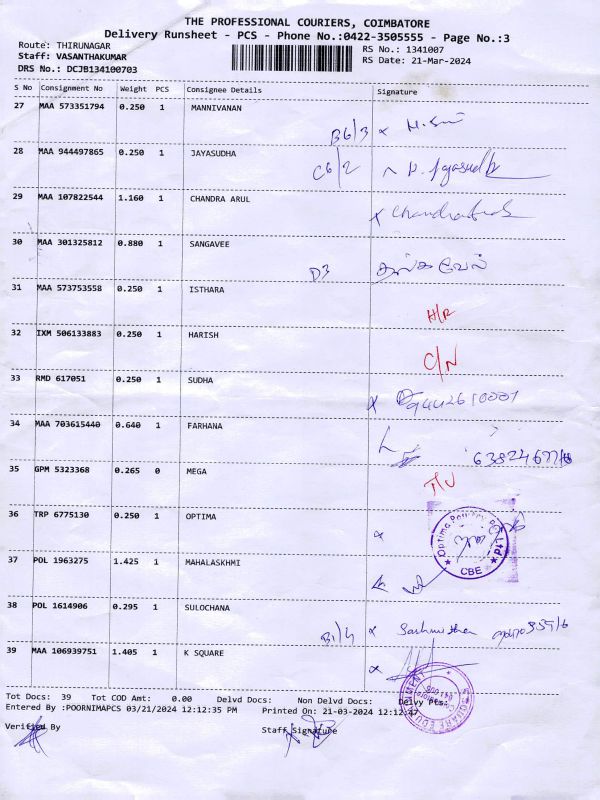 THE PROFESSIONAL COURIERS, COIMBATORE
Delivery Runsheet - PCS - Phone No.:0422-3505555 - Page No.:3
Route: THIRUNAGAR
Staff: VASANTHAKUMAR
DRS No.: DCJB134100703
RS No.: 1341007
RS Date: 21-Mar-2024
S No Consignment No Weight PCS Consignee Details Signature
27 MAA 573351794 0.250 1 MANNIVANAN
B6/3 x
28 MAA 944497865 0.250 1 JAYASUDHA
C6/2
29 MAA 107822544 1.160 1 CHANDRA ARUL
x
30 MAA 301325812 0.880 1 SANGAVEE
D3
31 MAA 573753558 0.250 1 ISTHARA
H/R
32 IXM 506133883 0.250 1 HARISH
C/N
33 RMD 617051 0.250 1 SUDHA
x 9442610001
34 MAA 703615440 0.640 1 FARHANA
35 GPM 5323368 0.265 0 MEGA
36 TRP 6775130 0.250 1 OPTIMA
x
CBE
37 POL 1963275 1.425 1 MAHALASKHMI
38 POL 1614906 0.295 1 SULOCHANA
B1/4 x
39 MAA 106939751 1.405 1 K SQUARE
x
Tot Docs: 39 Tot COD Amt: 0.00 Delvd Docs: Non Delvd Docs: Delvy Pts:
Entered By :POORNIMAPCS 03/21/2024 12:12:35 PM Printed On: 21-03-2024 12:12:47
Verified By Staff Signature